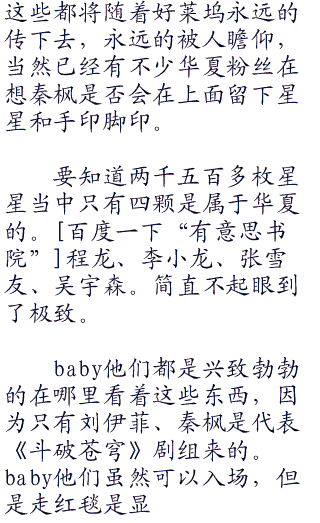 这些都将随着好菜坞永远的
传下去，永远的被人瞻仰，
当然已经有不少华夏粉丝在
想秦枫是否会在上面留下星
星和手印脚印。
要知道两千五百多枚星
星当中只有四颗是属于华夏
的。[百度一下“有意思书
院”]程龙、李小龙、张雪
友、吴宇森。简直不起眼到
了极致。
baby他们都是兴致勃勃
的在哪里看着这些东西，因
为只有刘伊菲、秦枫是代表
《斗破苍穹》剧组来的。
baby他们虽然可以入场，但
是走红毯是显